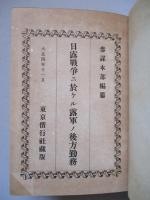 參謀本部編纂
日露戰爭ニ於ケル露軍ノ後方勤務
大正四年十一月
東京偕行社藏版